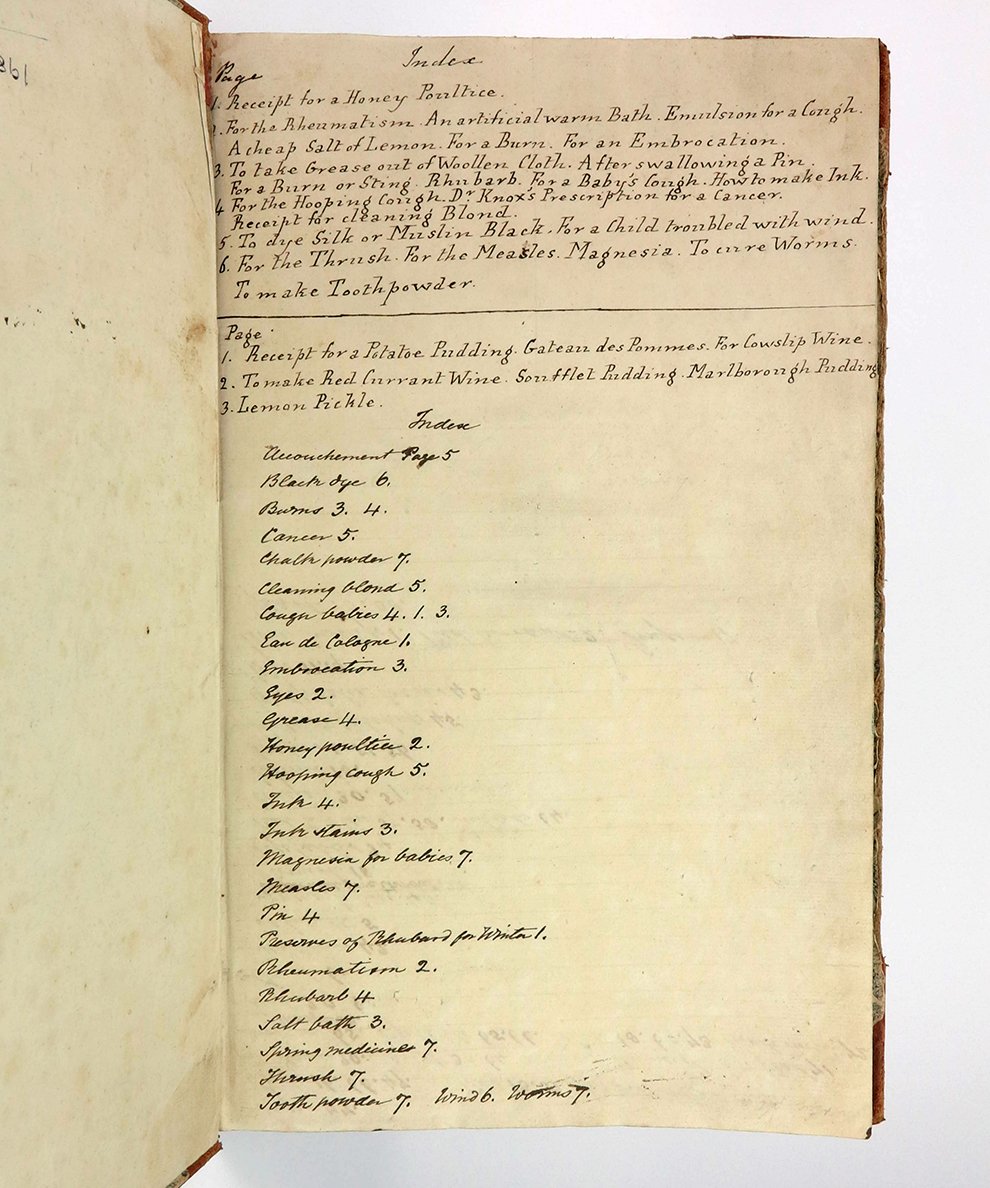 Index
Page
1. Receipt for a Honey Poultice.
2. For the Rheumatism. An artificial warm Bath. Emulsion for a Cough.
A cheap Salt of Lemon. For a Burn. For an Embrocation.
3. To take Grease out of Woollen Cloth. After swallowing a Pin.
For a Burn or Sting. Rhubarb. For a Baby's Cough. How to make Ink.
4 For the Hooping Cough. Dr Knox's Prescription for a Cancer.
Receipt for cleaning Blond.
5. To dye Silk or Muslin Black. For a Child troubled with wind.
6. For the Thrush. For the Measles. Magnesia. To cure Worms.
To make Toothpowder.
Page
1. Receipt for a Potatoe Pudding. Gateau des Pommes. For Cowslip Wine.
2. To make Red Currant Wine. Soufflet Pudding. Marlborough Pudding
3. Lemon Pickle.
Index
Accouchement Page 5
Black dye 6.
Burns 3. 4.
Cancer 5.
Chalk powder 7.
Cleaning blond 5.
Cough babies 4. 1. 3.
Eau de Cologne 1.
Embrocation 3.
Eyes 2.
Grease 4.
Honey poultice 2.
Hooping cough 5.
Ink 4.
Ink stains 3.
Magnesia for babies 7.
Measles 7.
Pin 4
Preserves of Rhubard for Winter 1.
Rheumatism 2.
Rhubarb 4
Salt bath 3.
Spring medicines 7.
Thrush 7.
Tooth powder 7. Wind 6. Worms 7.